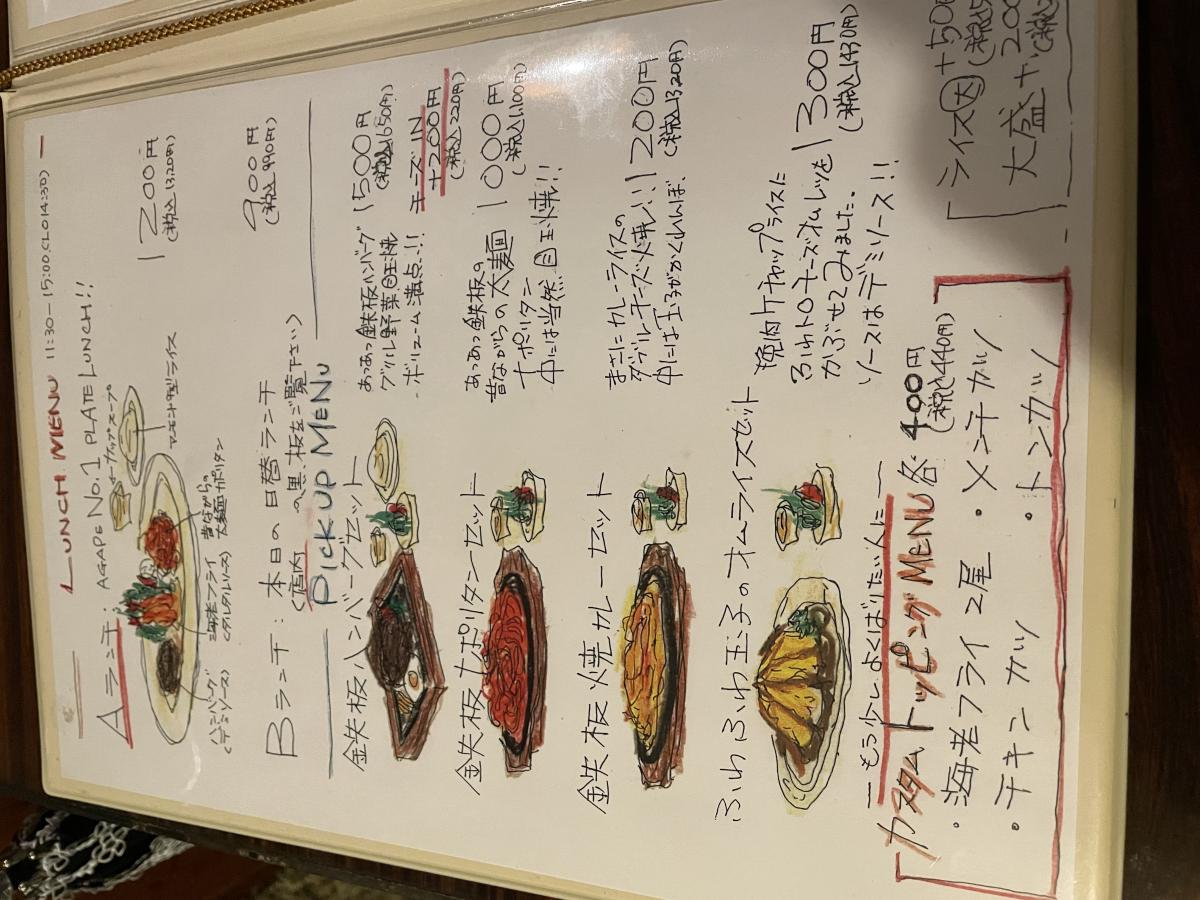 LUNCH MENU 11:30-15:00(LO14:30)
Aランチ: AGAPE No.1 PLATE LUNCH!!
1200円
(税込1320円)
オニオンカップスープ
アーモンド型ライス
ハンバーグ
(デミソース)
海老フライ
(タルタルソース)
昔ながらの
太麺ナポリタン
Bランチ: 本日の日替ランチ
900円
(税込990円)
(店内の黒板をご覧下さい)
PICKUP MENU
鉄板ハンバーグセット
あつあつ鉄板ハンバーグ
グリル野菜 目玉焼
ボリューム満点!!
1500円
(税込1650円)
チーズIN
+200円
(税込220円)
鉄板ナポリタンセット
あつあつ鉄板の
昔ながらの太麺
ナポリタン
中には当然目玉焼!!
1000円
(税込1,100円)
鉄板焼カレーセット
まさにカレーライスの
ダブルチーズ焼!!
中には玉子がかくれんぼ
1200円
(税込1320円)
ふわふわ玉子のオムライスセット
焼肉ケチャップライスに
ふわトロチーズオムレツを
かぶせてみました。
ソースはデミソース!!
1300円
(税込1430円)
―もう少しよくばりたい人に―
カスタムトッピングMENU 各400円
(税込440円)
・海老フライ2尾
・メンチカツ
・チキンカツ
・トンカツ
ライス大 +50円
大盛 +200